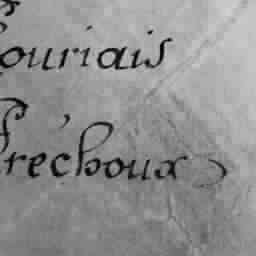 ouriais
réchoux